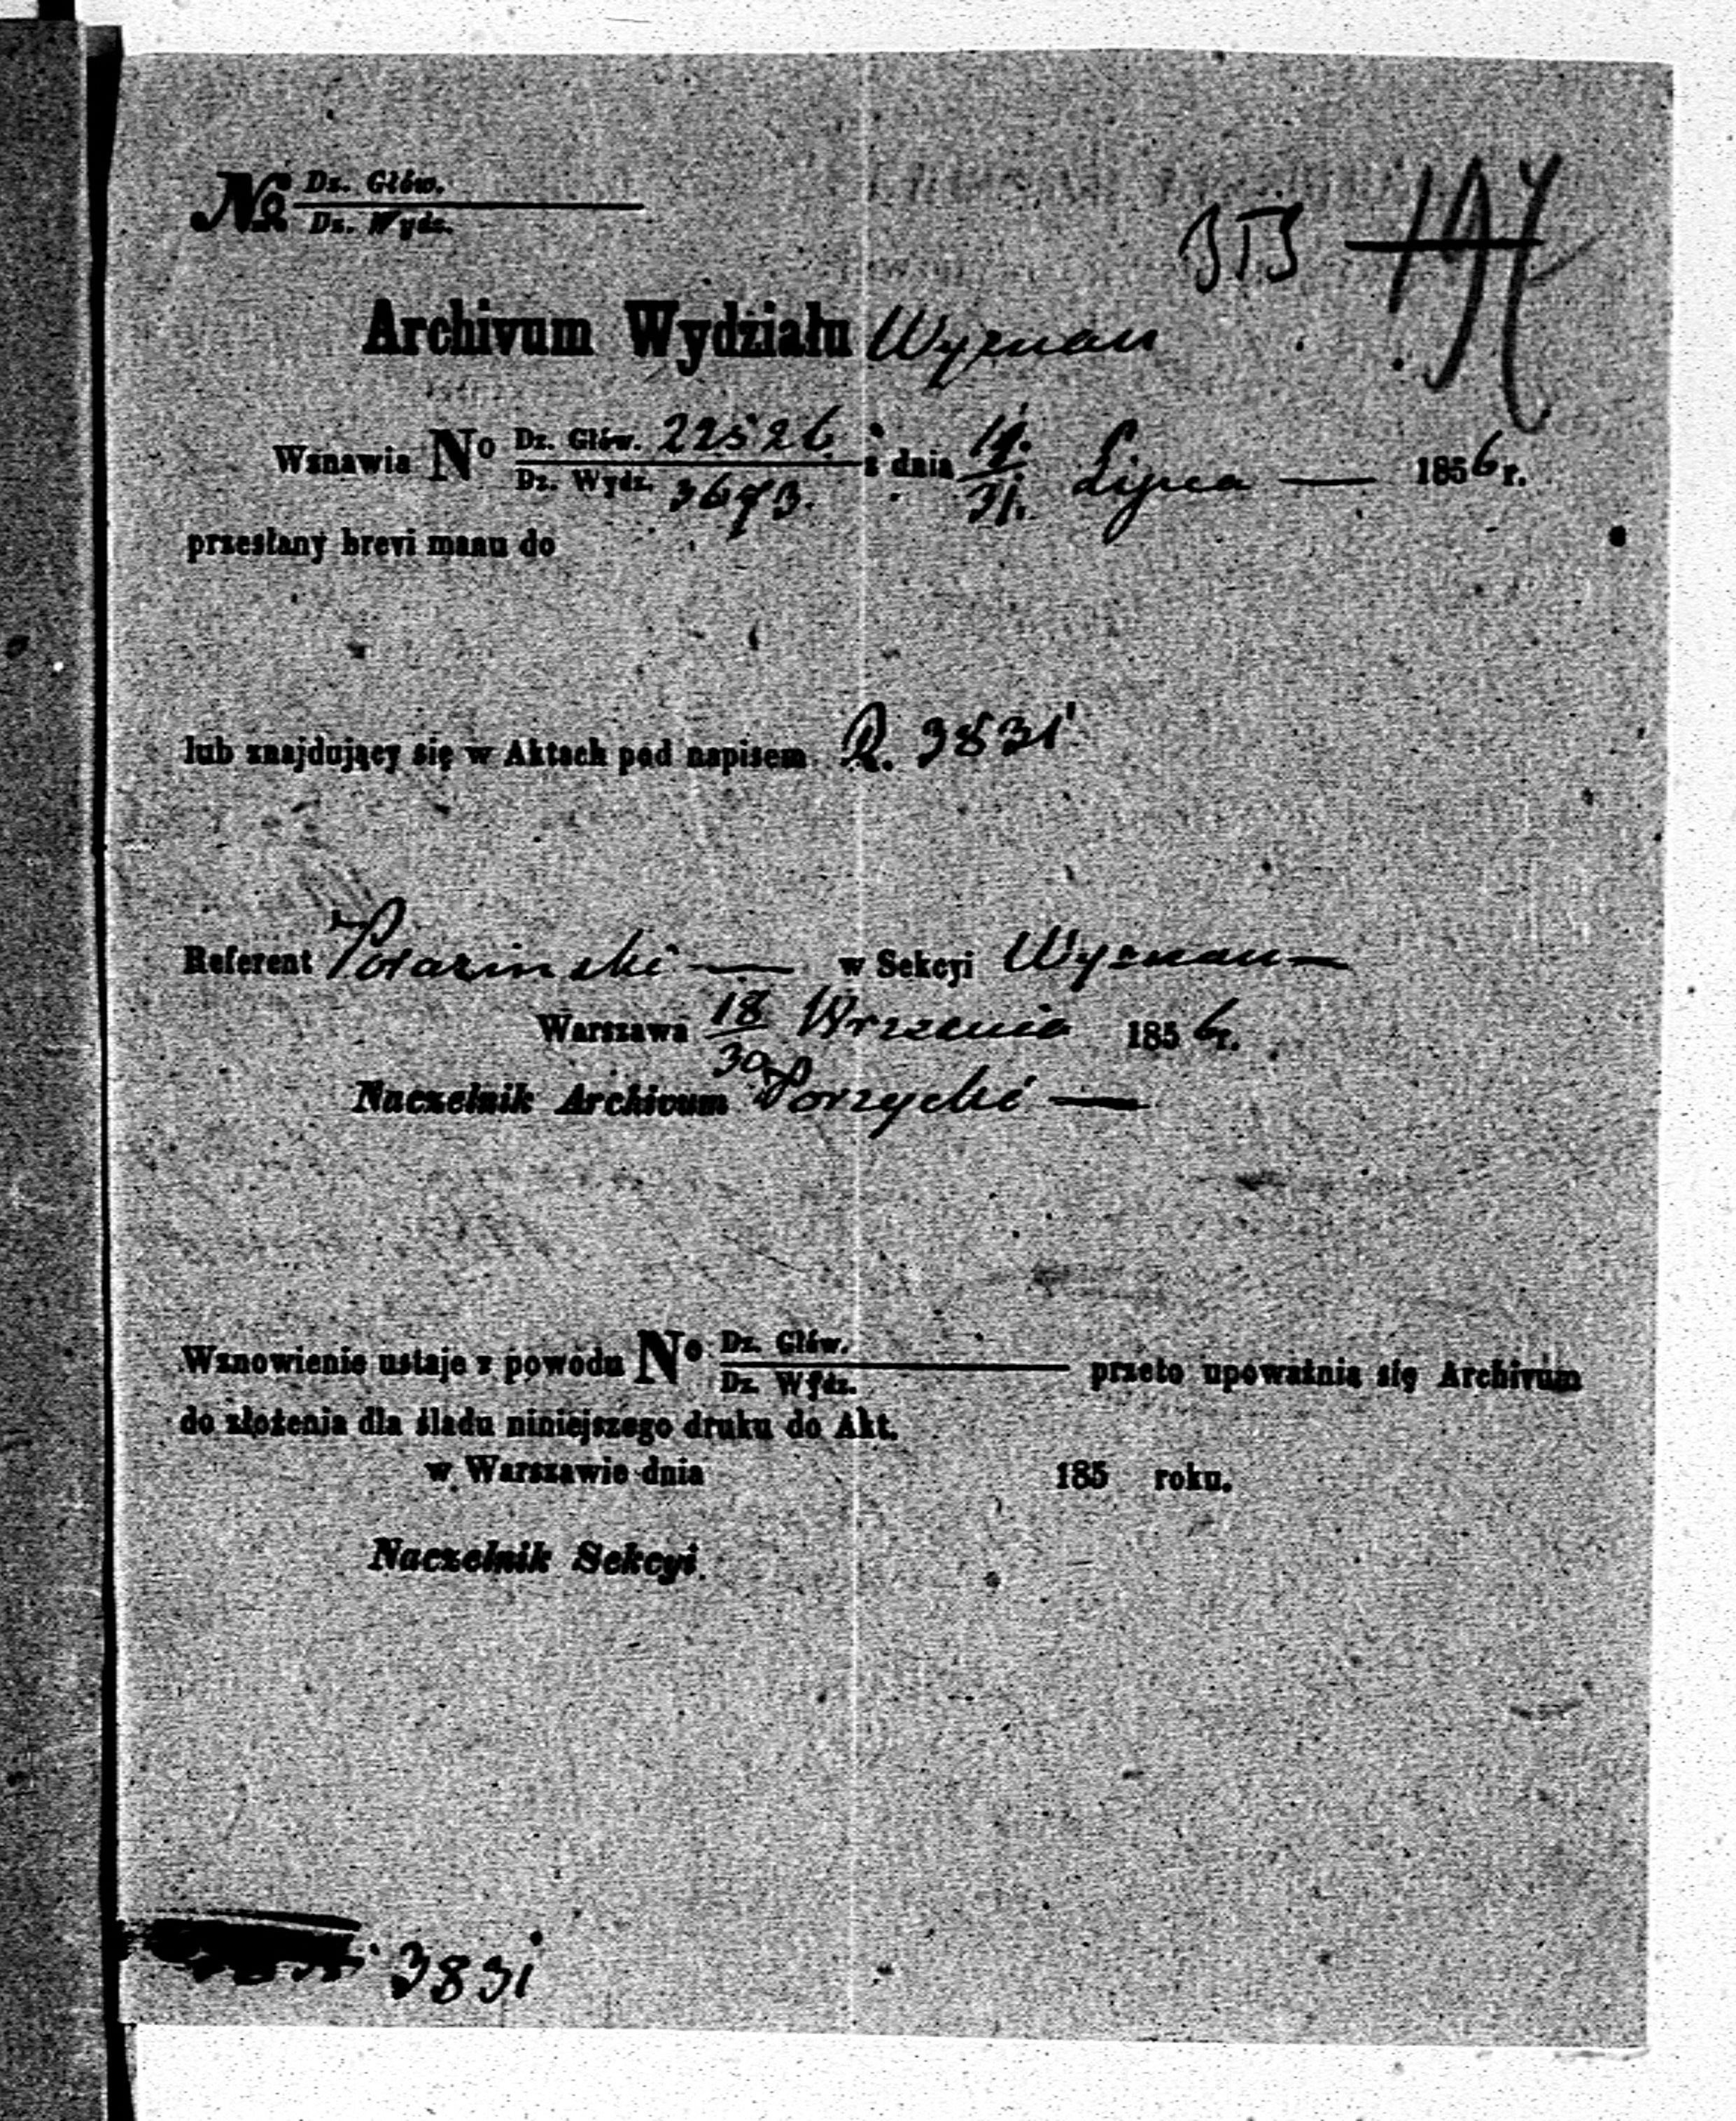 № Dz. Głów.
Dz. Wydz.
197
Archivum Wydziału Wyznań
Wznawia No Dz. Głów. 22526 z dnia 19/31 Lipca — 1856 r.
Dz. Wydz. 3673.
przesłany brevi manu do
lub znajdujący się w Aktach pod napisem R. 3831
Referent — w Sekcyi Wyznań —
Warszawa 18/30 Września 1856 r.
Naczelnik Archivum Porzycki —
Wznowienie ustaje z powodu No Dz. Głów. przeto upoważnia się Archivum
Dz. Wydz.
do złożenia dla śladu niniejszego druku do Akt.
w Warszawie dnia 185 roku.
Naczelnik Sekcyi.
3831